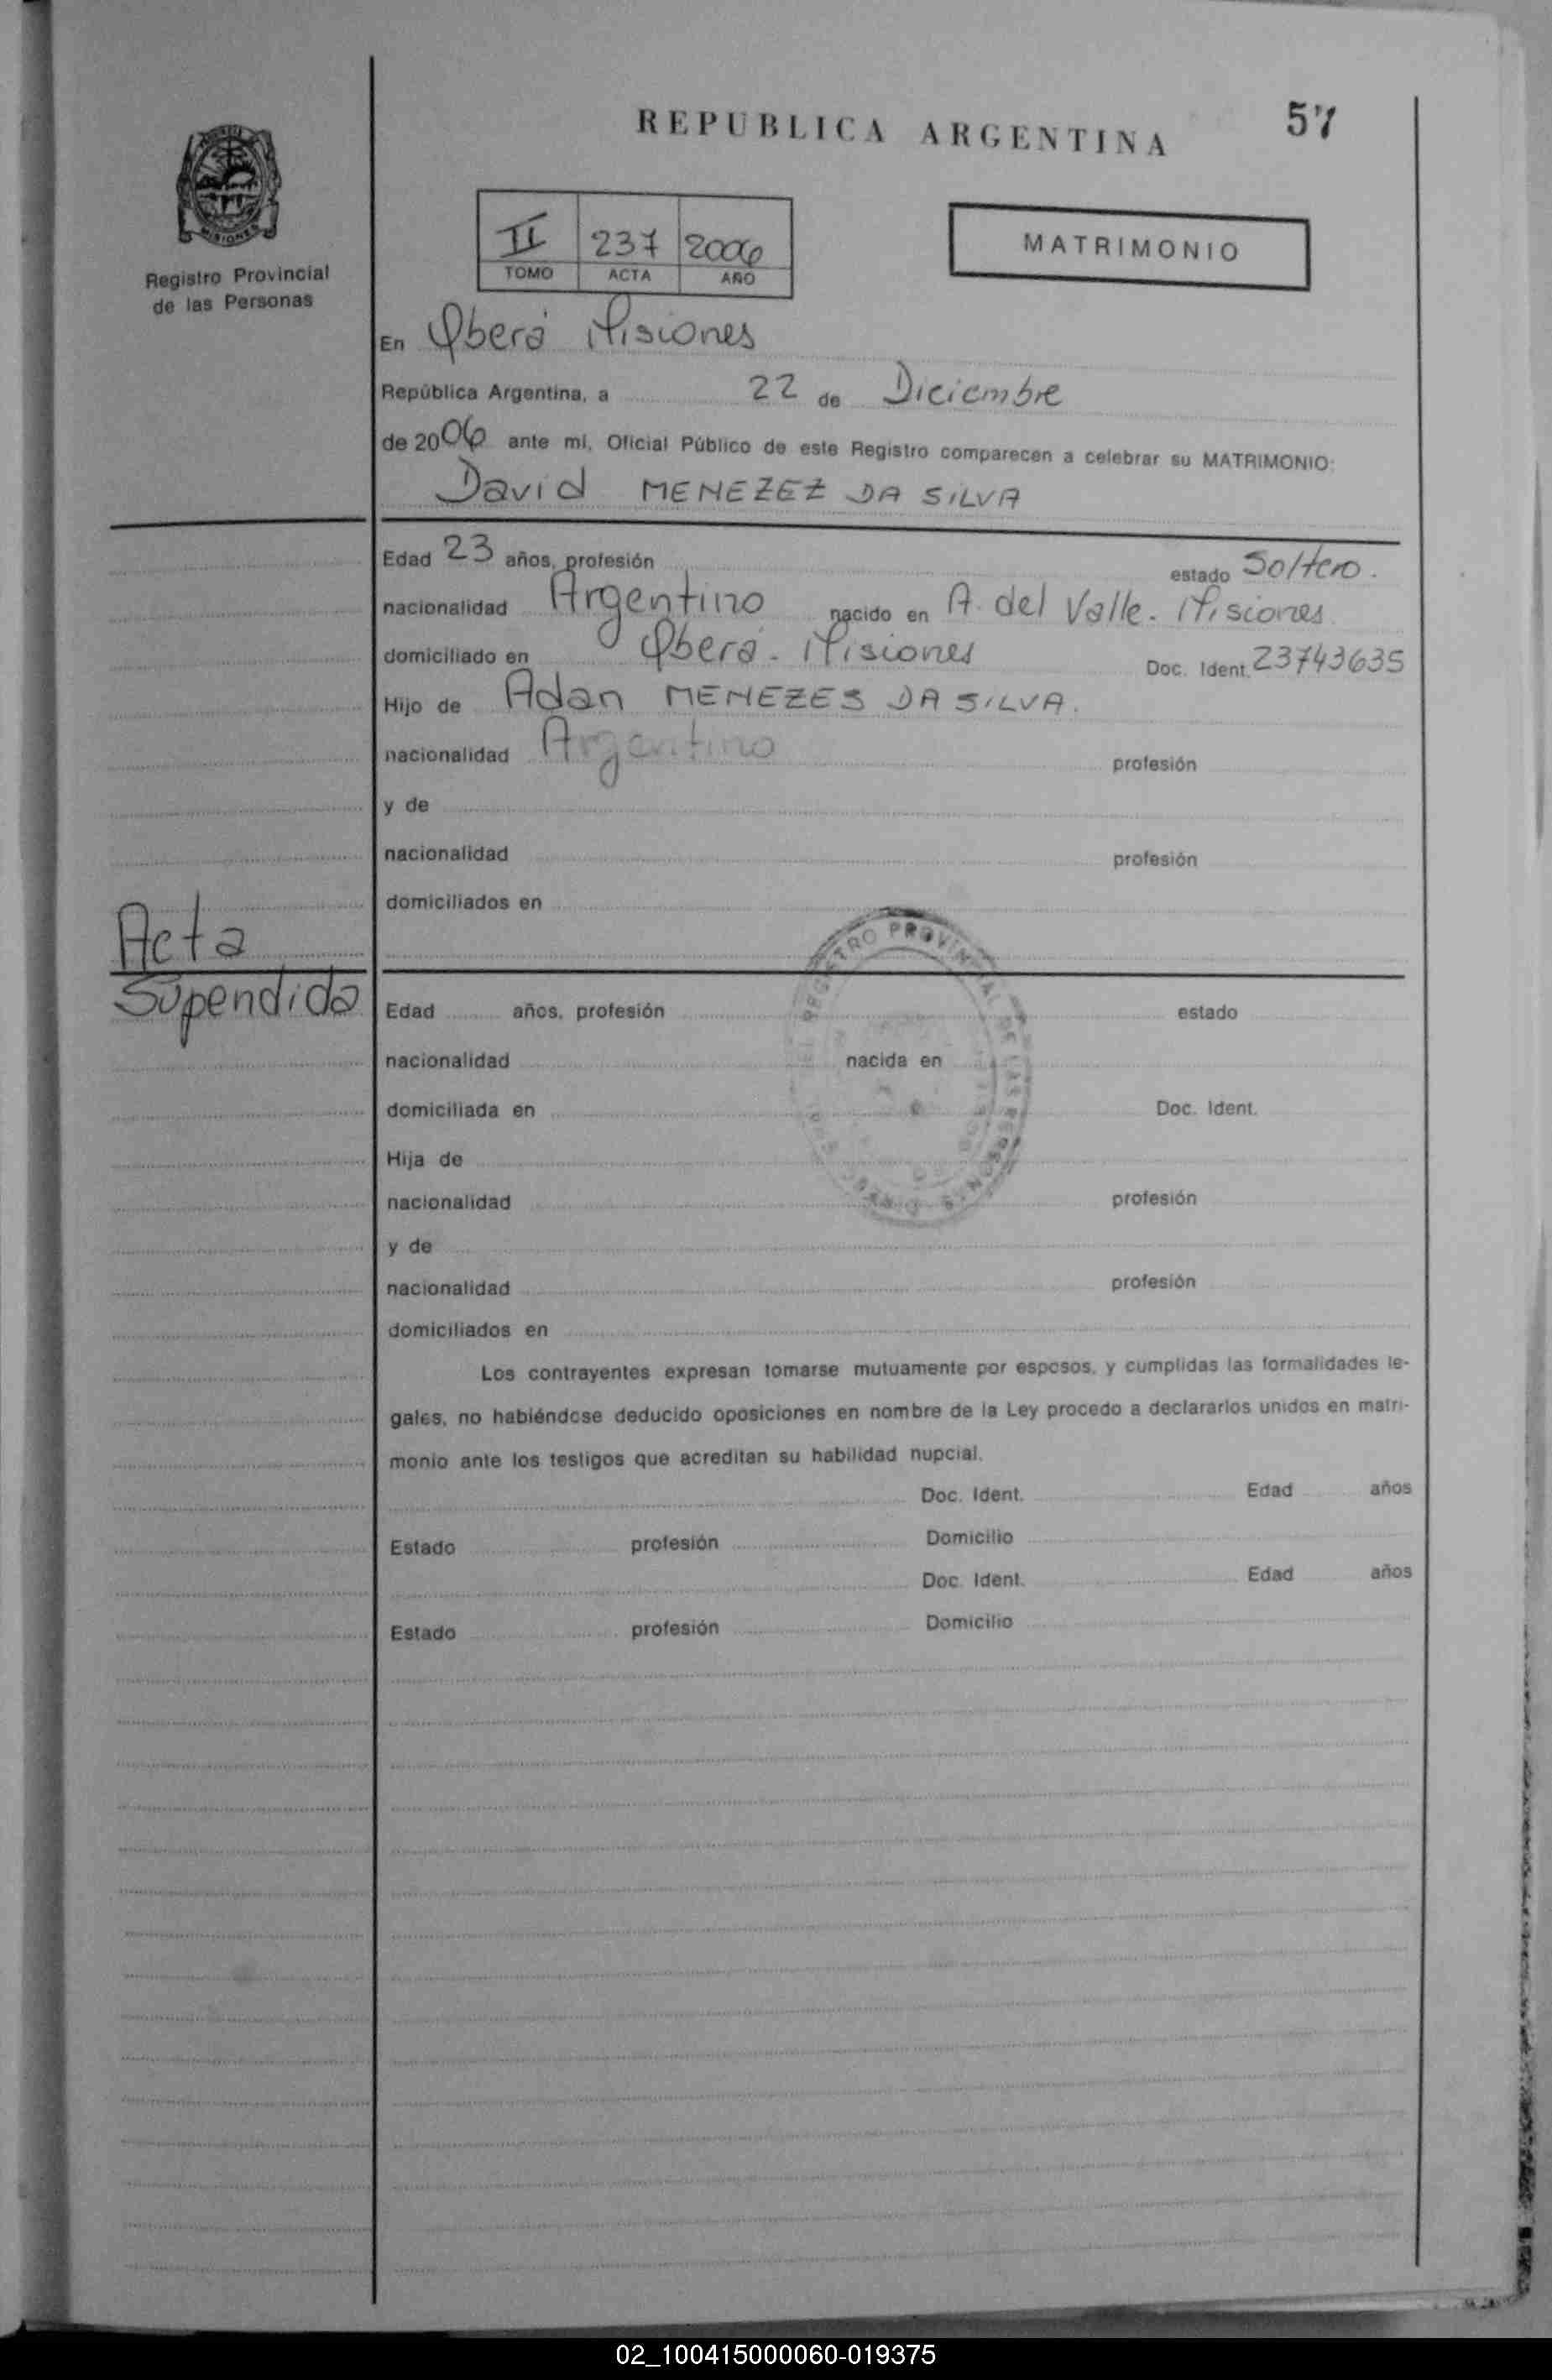 REPUBLICA ARGENTINA
57
MISIONES
Registro Provincial
de las Personas
II 237 2006
TOMO ACTA AÑO
MATRIMONIO
En Oberá Misiones
República Argentina, a 22 de Diciembre
de 2006 ante mí, Oficial Público de este Registro comparecen a celebrar su MATRIMONIO:
David MENEZEZ DA SILVA
Edad 23 años, profesión estado Soltero.
nacionalidad Argentino nacido en A. del Valle. Misiones
domiciliado en Oberá - Misiones Doc. Ident. 23743635
Hijo de Adan MENEZES DA SILVA.
nacionalidad Argentino profesión
y de
nacionalidad profesión
domiciliados en
Acta
Supendida
Edad años, profesión estado
nacionalidad nacida en
domiciliada en Doc. Ident.
Hija de
nacionalidad profesión
y de
nacionalidad profesión
domiciliados en
Los contrayentes expresan tomarse mutuamente por esposos, y cumplidas las formalidades le-
gales, no habiéndose deducido oposiciones en nombre de la Ley procedo a declararlos unidos en matri-
monio ante los testigos que acreditan su habilidad nupcial.
Doc. Ident. Edad años
Estado profesión Domicilio
Doc. Ident. Edad años
Estado profesión Domicilio
REGISTRO PROVINCIAL DE LAS PERSONAS
02_100415000060-019375